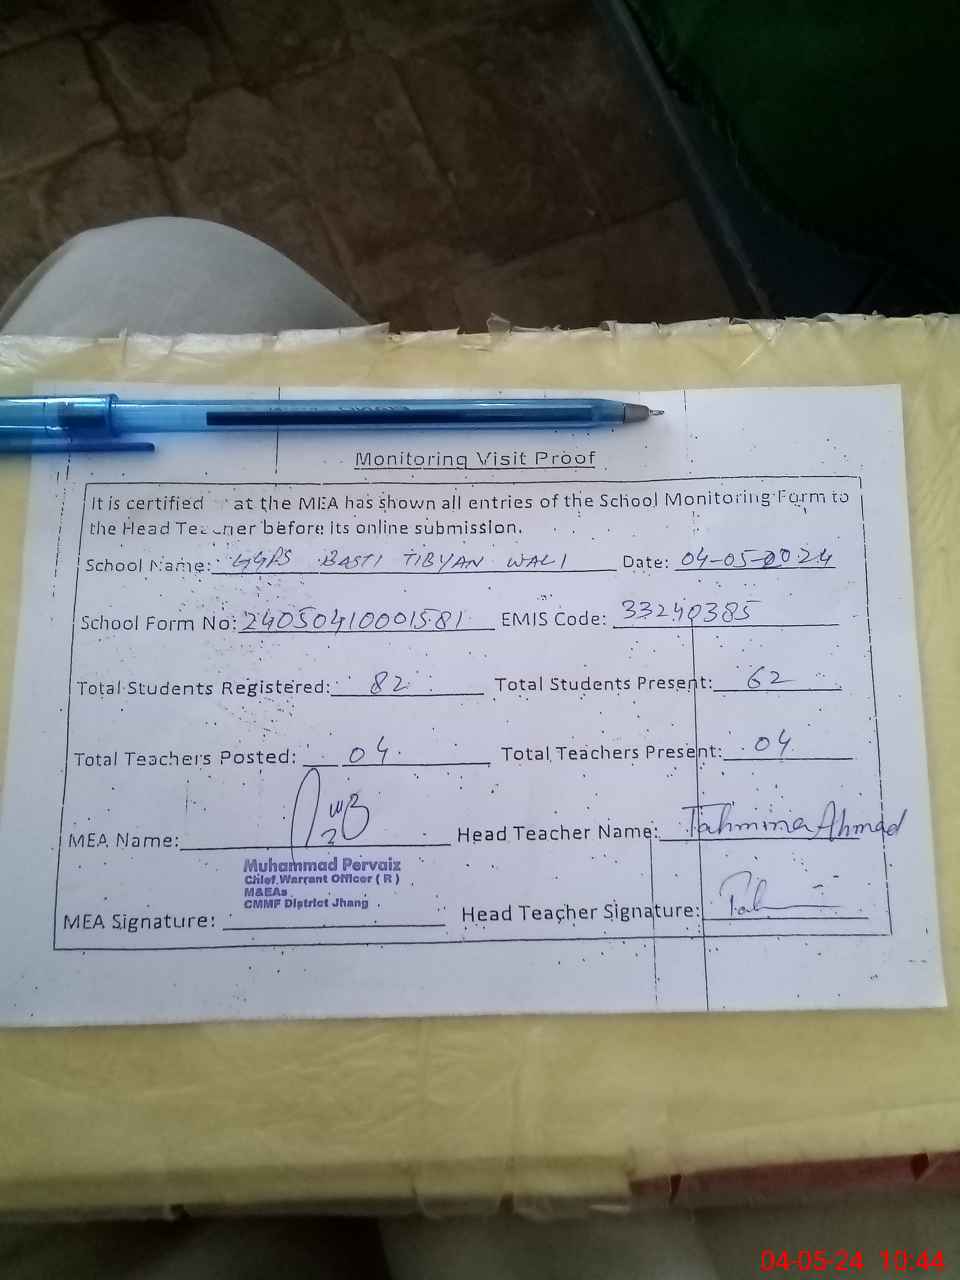 Monitoring Visit Proof
It is certified at the MEA has shown all entries of the School Monitoring Form to
the Head Teacher before its online submission.
School Name: GGPS BASTI TIBYAN WALI Date: 04-05-2024
School Form No: 24050410001581 EMIS Code: 33240385
Total Students Registered: 82 Total Students Present: 62
Total Teachers Posted: 04 Total Teachers Present: 04
MEA Name: Head Teacher Name: Tahmina Ahmad
Muhammad Pervaiz
Chief Warrant Officer ( R )
M&EAs
CMMF District Jhang
MEA Signature: Head Teacher Signature:
04-05-24 10:44